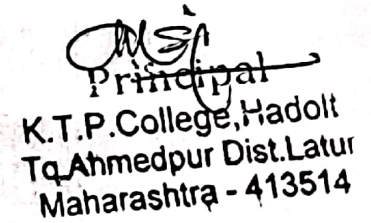 Principal
K.T.P.College,Hadolt
Tq.Ahmedpur Dist.Latur
Maharashtra - 413514